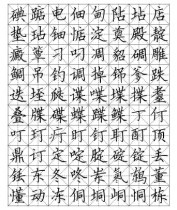 碘踮电佃甸阽坫店
垫玷钿惦淀奠殿靛
癜簟刁叼凋貂碉雕
鲷吊钓调掉铞爹跌
迭垤瓞谍喋堞耋
叠牒碟蝶蹀鲽丁仃
叮玎疔盯钉耵酊顶
鼎订定啶腚碇锭丢
铥东冬咚岽氡鸫董
懂动冻侗垌峒恫栋